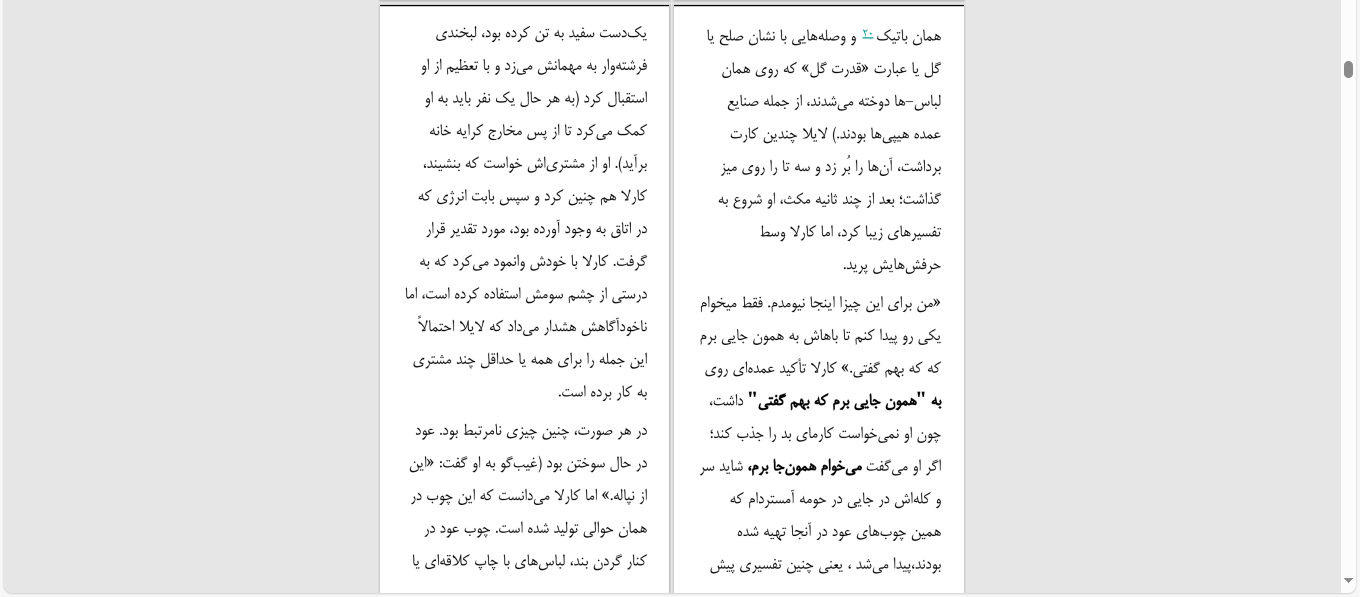 یک‌دست سفید به تن کرده بود، لبخندی
فرشته‌وار به مهمانش می‌زد و با تعظیم از او
استقبال کرد (به هر حال یک نفر باید به او
کمک می‌کرد تا از پس مخارج کرایه خانه
برآید). او از مشتری‌اش خواست که بنشیند،
کارلا هم چنین کرد و سپس بابت انرژی که
در اتاق به وجود آورده بود، مورد تقدیر قرار
گرفت. کارلا با خودش وانمود می‌کرد که به
درستی از چشم سومش استفاده کرده است، اما
ناخودآگاهش هشدار می‌داد که لایلا احتمالاً
این جمله را برای همه یا حداقل چند مشتری
به کار برده است.
در هر صورت، چنین چیزی نامرتبط بود. عود
در حال سوختن بود (غیب‌گو به او گفت: «این
از نپاله.» اما کارلا می‌دانست که این چوب در
همان حوالی تولید شده است. چوب عود در
کنار گردن بند، لباس‌های با چاپ کلاقه‌ای یا
همان باتیک ۲۰ و وصله‌هایی با نشان صلح یا
گل یا عبارت «قدرت گل» که روی همان
لباس-ها دوخته می‌شدند، از جمله صنایع
عمده هیپی‌ها بودند.) لایلا چندین کارت
برداشت، آن‌ها را بُر زد و سه تا را روی میز
گذاشت؛ بعد از چند ثانیه مکث، او شروع به
تفسیرهای زیبا کرد، اما کارلا وسط
حرفش‌هایش پرید.
«من برای این چیزا اینجا نیومدم. فقط میخوام
یکی رو پیدا کنم تا باهاش به همون جایی برم
که که بهم گفتی.» کارلا تأکید عمده‌ای روی
به "همون جایی برم که بهم گفتی" داشت،
چون او نمی‌خواست کارمای بد را جذب کند؛
اگر او می‌گفت می‌خوام همون‌جا برم، شاید سر
و کله‌اش در جایی در حومه آمستردام که
همین چوب‌های عود در آنجا تهیه شده
بودند،پیدا می‌شد ، یعنی چنین تفسیری پیش